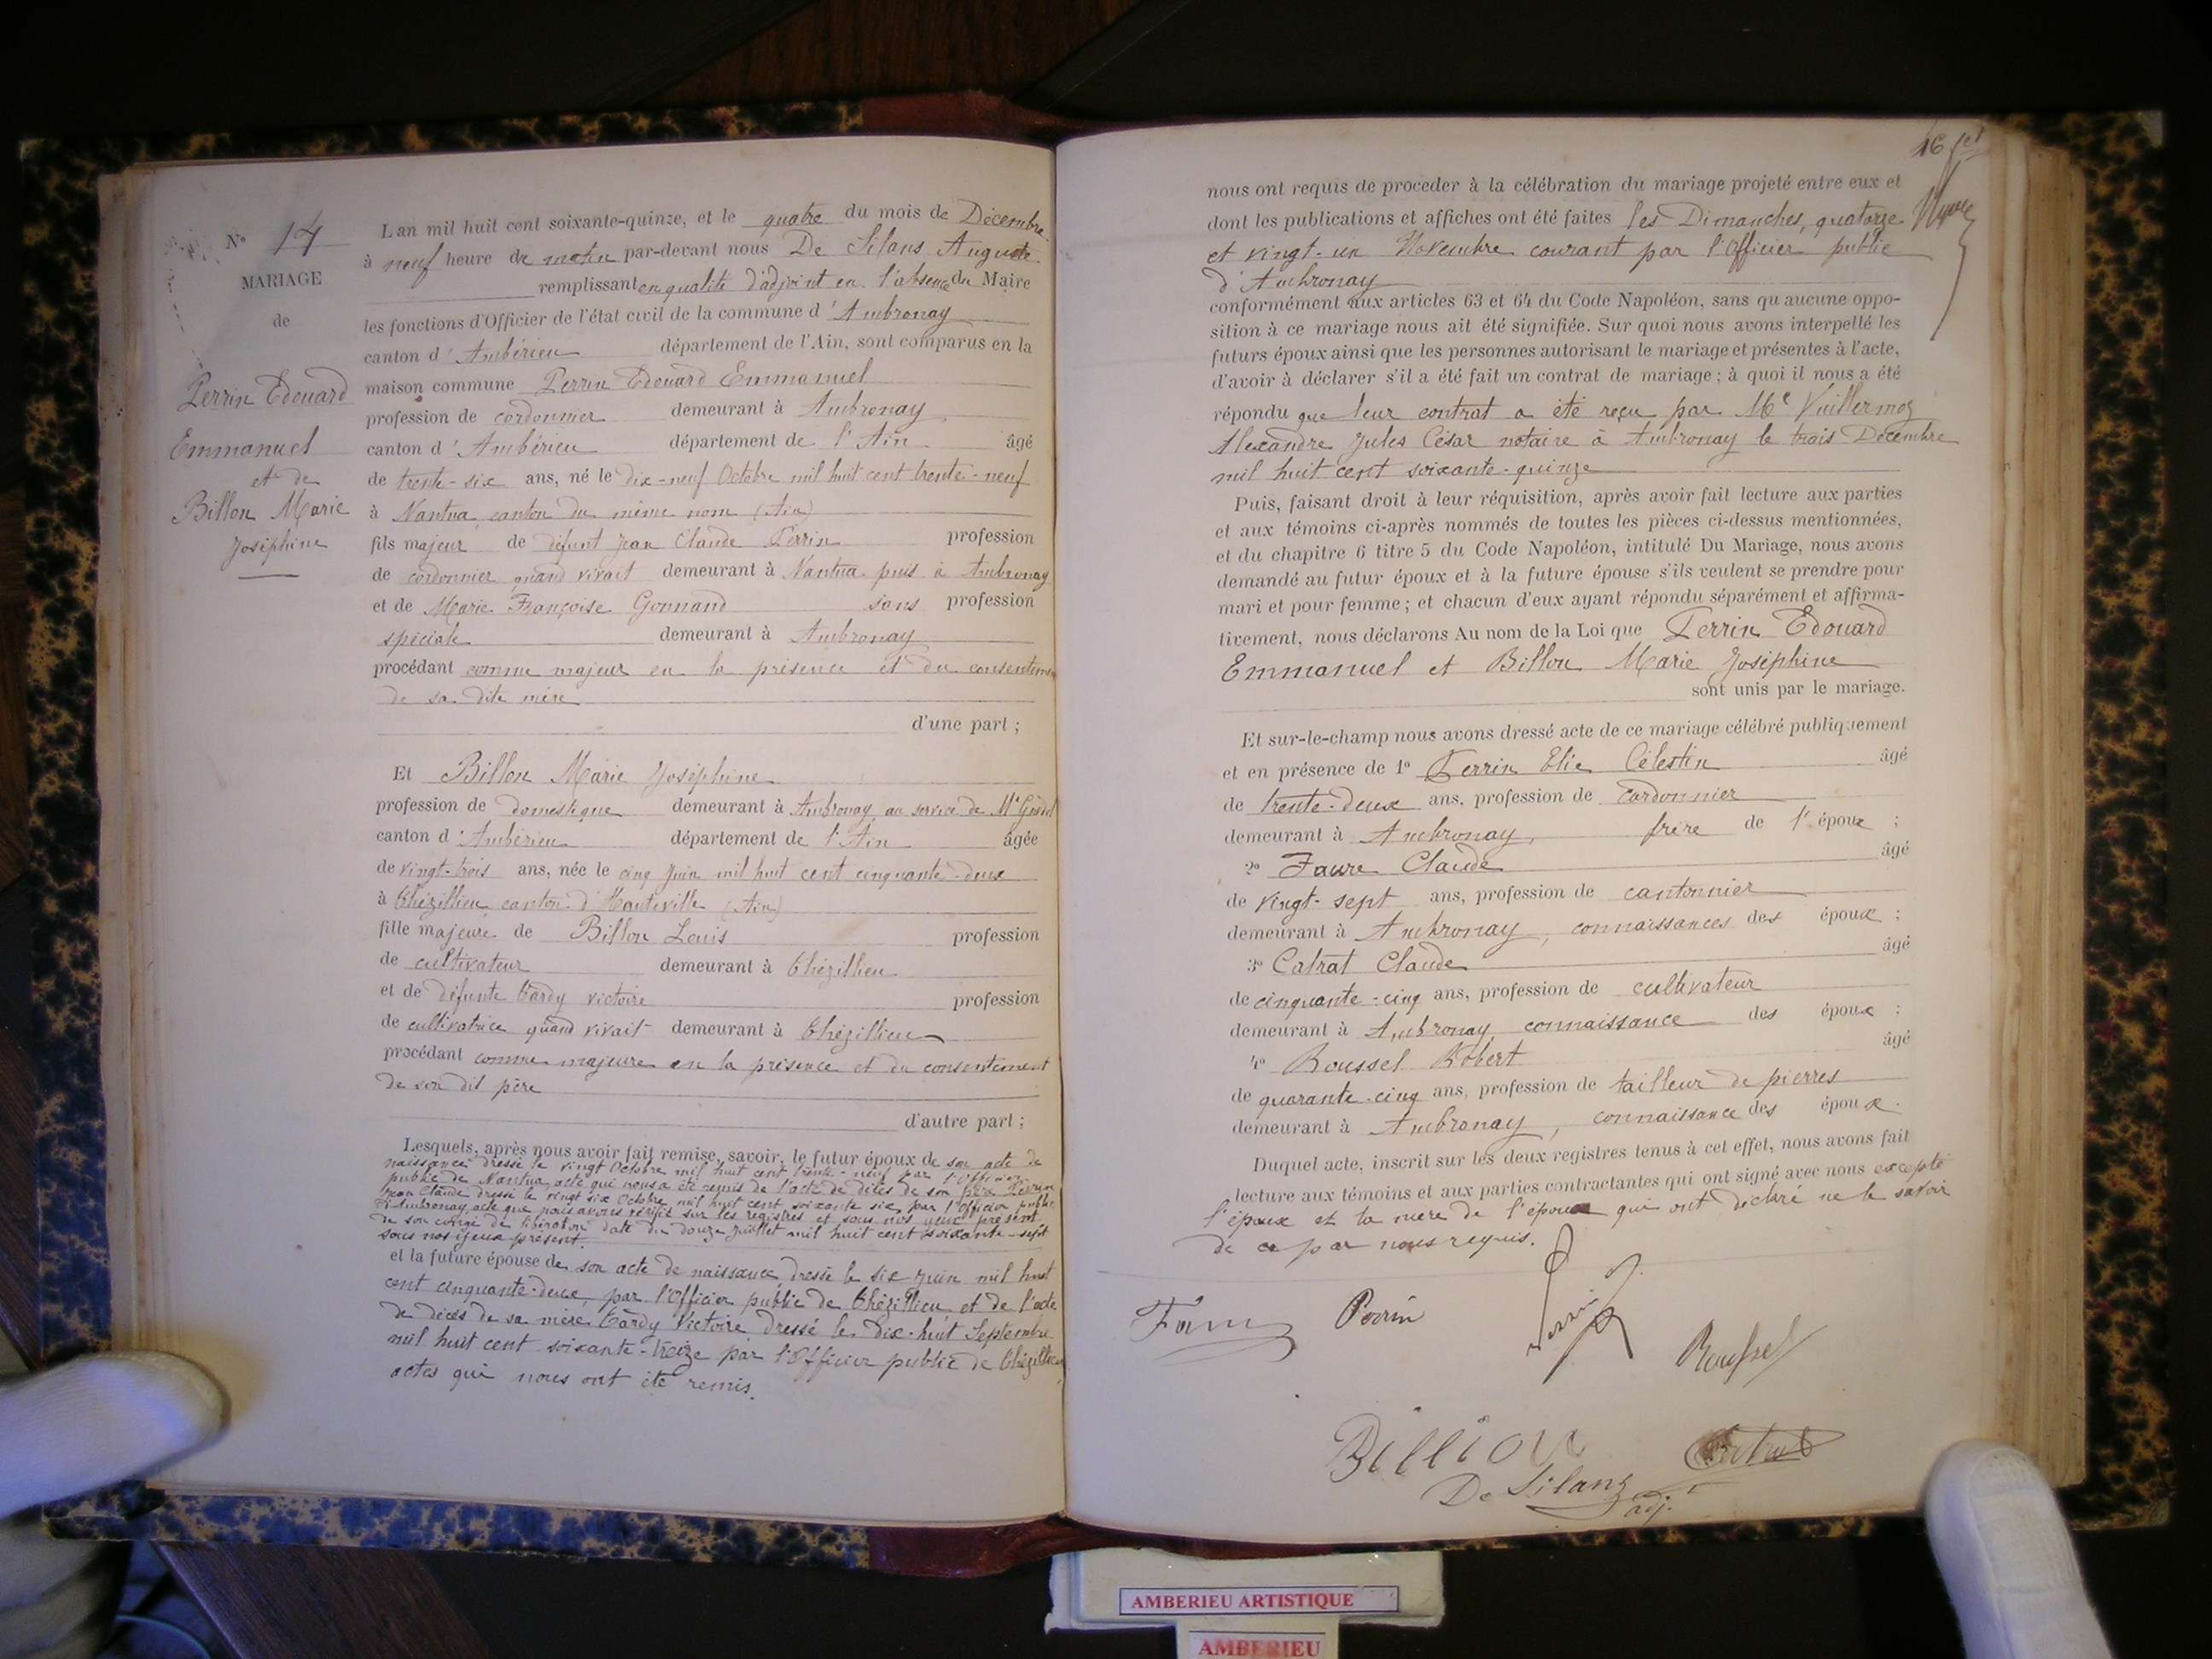 N° 14
MARIAGE
de
Perrin Edouard
Emmanuel
et de
Billon Marie
Joséphine
L an mil huit cent soixante-quinze, et le quatre du mois de Décembre
à neuf heure de matin par-devant nous De Silans Auguste
remplissant en qualité d'adjoint en l'absence du Maire
les fonctions d'Officier de l'état civil de la commune d'Ambronay
canton d'Ambérieu département de l'Ain, sont comparus en la
maison commune Perrin Edouard Emmanuel
profession de cordonnier demeurant à Ambronay
canton d'Ambérieu département de l'Ain âgé
de trente-six ans, né le dix-neuf Octobre mil huit cent trente-neuf
à Nantua canton du même nom (Ain)
fils majeur de défunt Jean Claude Perrin profession
de cordonnier quand vivait demeurant à Nantua puis à Ambronay
et de Marie Françoise Gonnand sans profession
spéciale demeurant à Ambronay
procédant comme majeur en la présence et du consentement
de sa dite mère
d'une part ;
Et Billon Marie Joséphine
profession de domestique demeurant à Ambronay au service de Mr
canton d'Ambérieu département de l'Ain âgée
de vingt-trois ans, née le cinq Juin mil huit cent cinquante-deux
à Thézillieu canton d'Hauteville (Ain)
fille majeure de Billon Louis profession
de cultivateur demeurant à Thézillieu
et de défunte Tardy Victoire profession
de cultivatrice quand vivait demeurant à Thézillieu
procédant comme majeure en la présence et du consentement
de son dit père
d'autre part ;
Lesquels, après nous avoir fait remise, savoir, le futur époux de son acte de
naissance dressé le vingt Octobre mil huit cent trente-neuf par l'Officier
public de Nantua, acte qui nous a été remis de l'acte de décès de son père Perrin
Jean Claude dressé le vingt six Octobre mil huit cent soixante six par l'Officier public
d'Ambronay, acte que nous avons vérifié sur les registres et sous nos yeux présent
de son congé de libération daté du douze Juillet mil huit cent soixante-sept
sous nos yeux présent.
et la future épouse de son acte de naissance dressé le six Juin mil huit
cent cinquante-deux, par l'Officier public de Thézillieu et de l'acte
de décès de sa mère Tardy Victoire dressé le Dix-huit Septembre
mil huit cent soixante-treize par l'Officier public de Thézillieu
actes qui nous ont été remis.
16
nous ont requis de proceder à la célébration du mariage projeté entre eux et
dont les publications et affiches ont été faites les Dimanches, quatorze
et vingt-un Novembre courant par l'Officier public
d'Ambronay
conformément aux articles 63 et 64 du Code Napoléon, sans qu aucune oppo-
sition à ce mariage nous ait été signifiée. Sur quoi nous avons interpellé les
futurs époux ainsi que les personnes autorisant le mariage et présentes à l'acte,
d'avoir à déclarer s'il a été fait un contrat de mariage ; à quoi il nous a été
répondu que leur contrat a été reçu par Me Vuillermoz
Alexandre Jules César notaire à Ambronay le trois Décembre
mil huit cent soixante-quinze
Puis, faisant droit à leur réquisition, après avoir fait lecture aux parties
et aux témoins ci-après nommés de toutes les pièces ci-dessus mentionnées,
et du chapitre 6 titre 5 du Code Napoléon, intitulé Du Mariage, nous avons
demandé au futur époux et à la future épouse s'ils veulent se prendre pour
mari et pour femme ; et chacun d'eux ayant répondu séparément et affirma-
tivement, nous déclarons Au nom de la Loi que Perrin Edouard
Emmanuel et Billon Marie Joséphine
sont unis par le mariage.
Et sur-le-champ nous avons dressé acte de ce mariage célébré publiquement
et en présence de 1° Perrin Elie Célestin âgé
de trente-deux ans, profession de cordonnier
demeurant à Ambronay, frère de l'époux ;
2° Faure Claude âgé
de vingt-sept ans, profession de cantonnier
demeurant à Ambronay, connaissances des époux ;
3° Catrat Claude âgé
de cinquante-cinq ans, profession de cultivateur
demeurant à Ambronay connaissance des époux ;
4° Roussel Robert âgé
de quarante-cinq ans, profession de tailleur de pierres
demeurant à Ambronay, connaissance des époux.
Duquel acte, inscrit sur les deux registres tenus à cet effet, nous avons fait
lecture aux témoins et aux parties contractantes qui ont signé avec nous excepté
l'épouse et la mère de l'époux qui ont déclaré ne le savoir
de ce par nous requis.
Perrin
Roussel
Billion
De Silans
adj.
AMBERIEU ARTISTIQUE
AMBERIEU